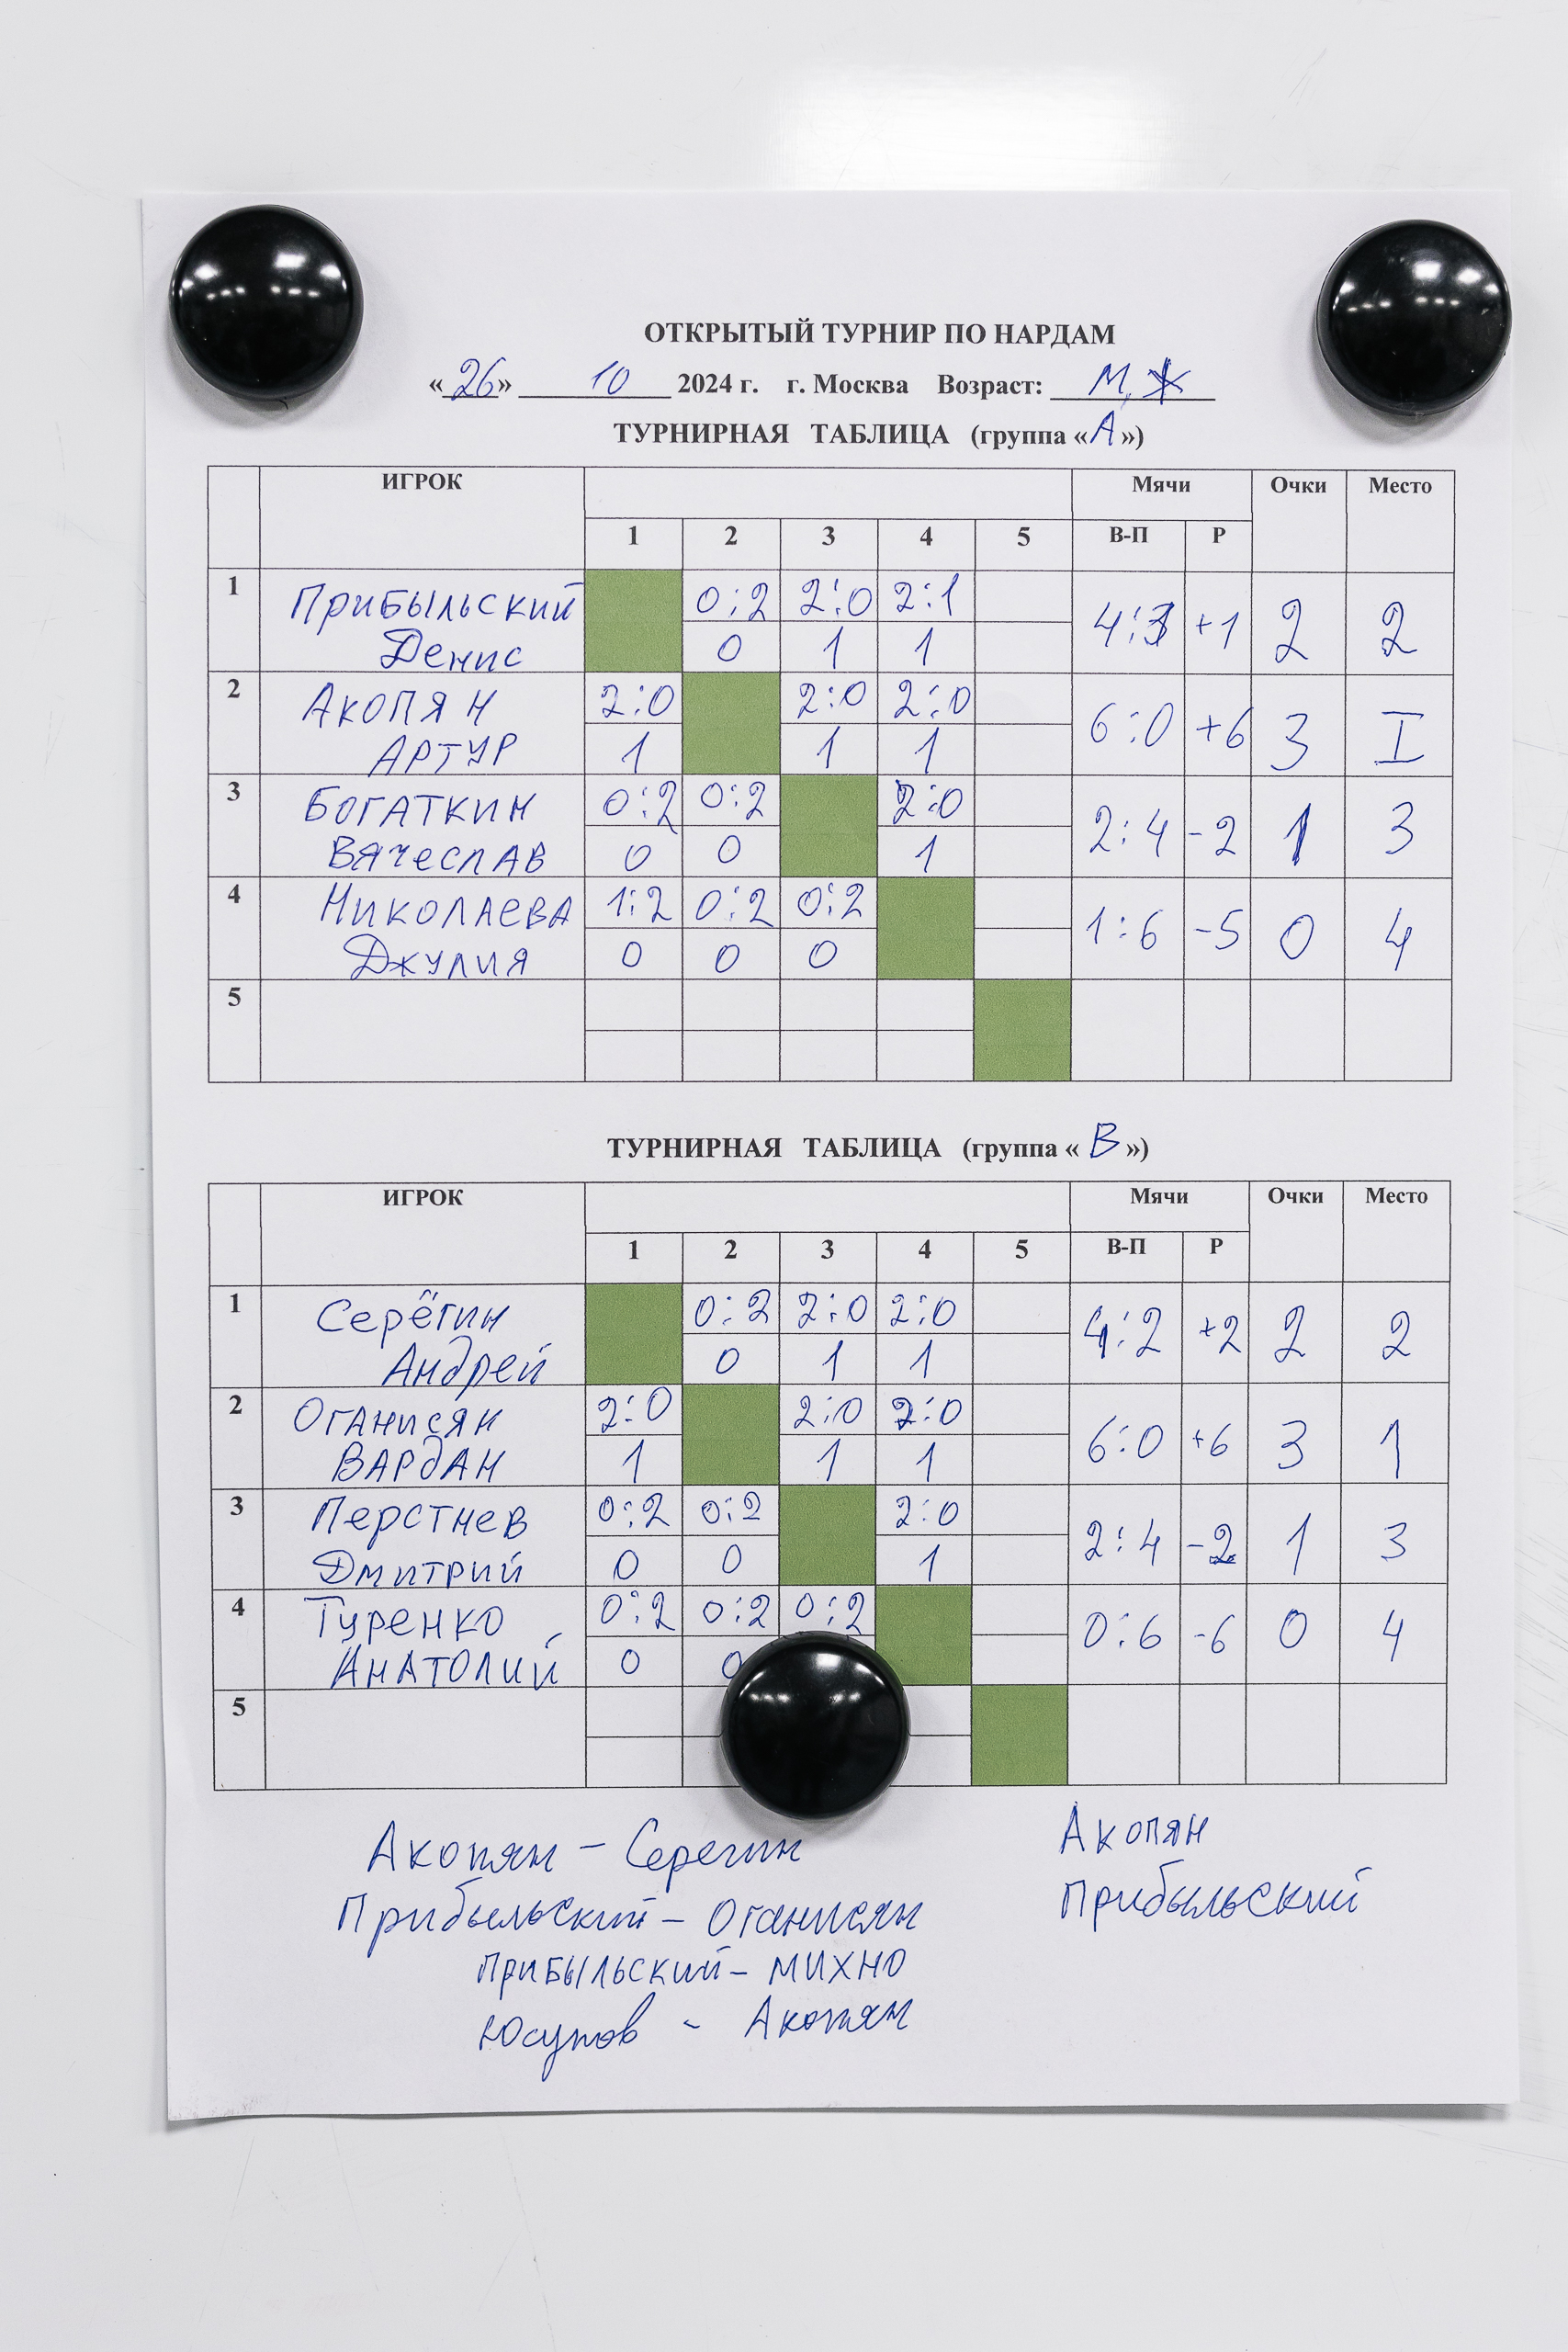 ОТКРЫТЫЙ ТУРНИР ПО НАРДАМ
«26» 10 2024 г. г. Москва Возраст: М, Ж
ТУРНИРНАЯ ТАБЛИЦА (группа «А»)
ИГРОК Мячи Очки Место
1 2 3 4 5 В-П Р
1 Прибыльский 0:2 2:0 2:1 4:3 +1 2 2
Денис 0 1 1
2 Акопян 2:0 2:0 2:0 6:0 +6 3 I
Артур 1 1 1
3 Богаткин 0:2 0:2 2:0 2:4 -2 1 3
Вячеслав 0 0 1
4 Николаева 1:2 0:2 0:2 1:6 -5 0 4
Джулия 0 0 0
5
ТУРНИРНАЯ ТАБЛИЦА (группа «В»)
ИГРОК Мячи Очки Место
1 2 3 4 5 В-П Р
1 Серёгин 0:2 2:0 2:0 4:2 +2 2 2
Андрей 0 1 1
2 Оганисян 2:0 2:0 2:0 6:0 +6 3 1
Вардан 1 1 1
3 Перстнев 0:2 0:2 2:0 2:4 -2 1 3
Дмитрий 0 0 1
4 Туренко 0:2 0:2 0:2 0:6 -6 0 4
Анатолий 0 0
5
Акопян - Серегин Акопян
Прибыльский - Оганисян Прибыльский
Прибыльский - Михно
Юсупов - Акопян